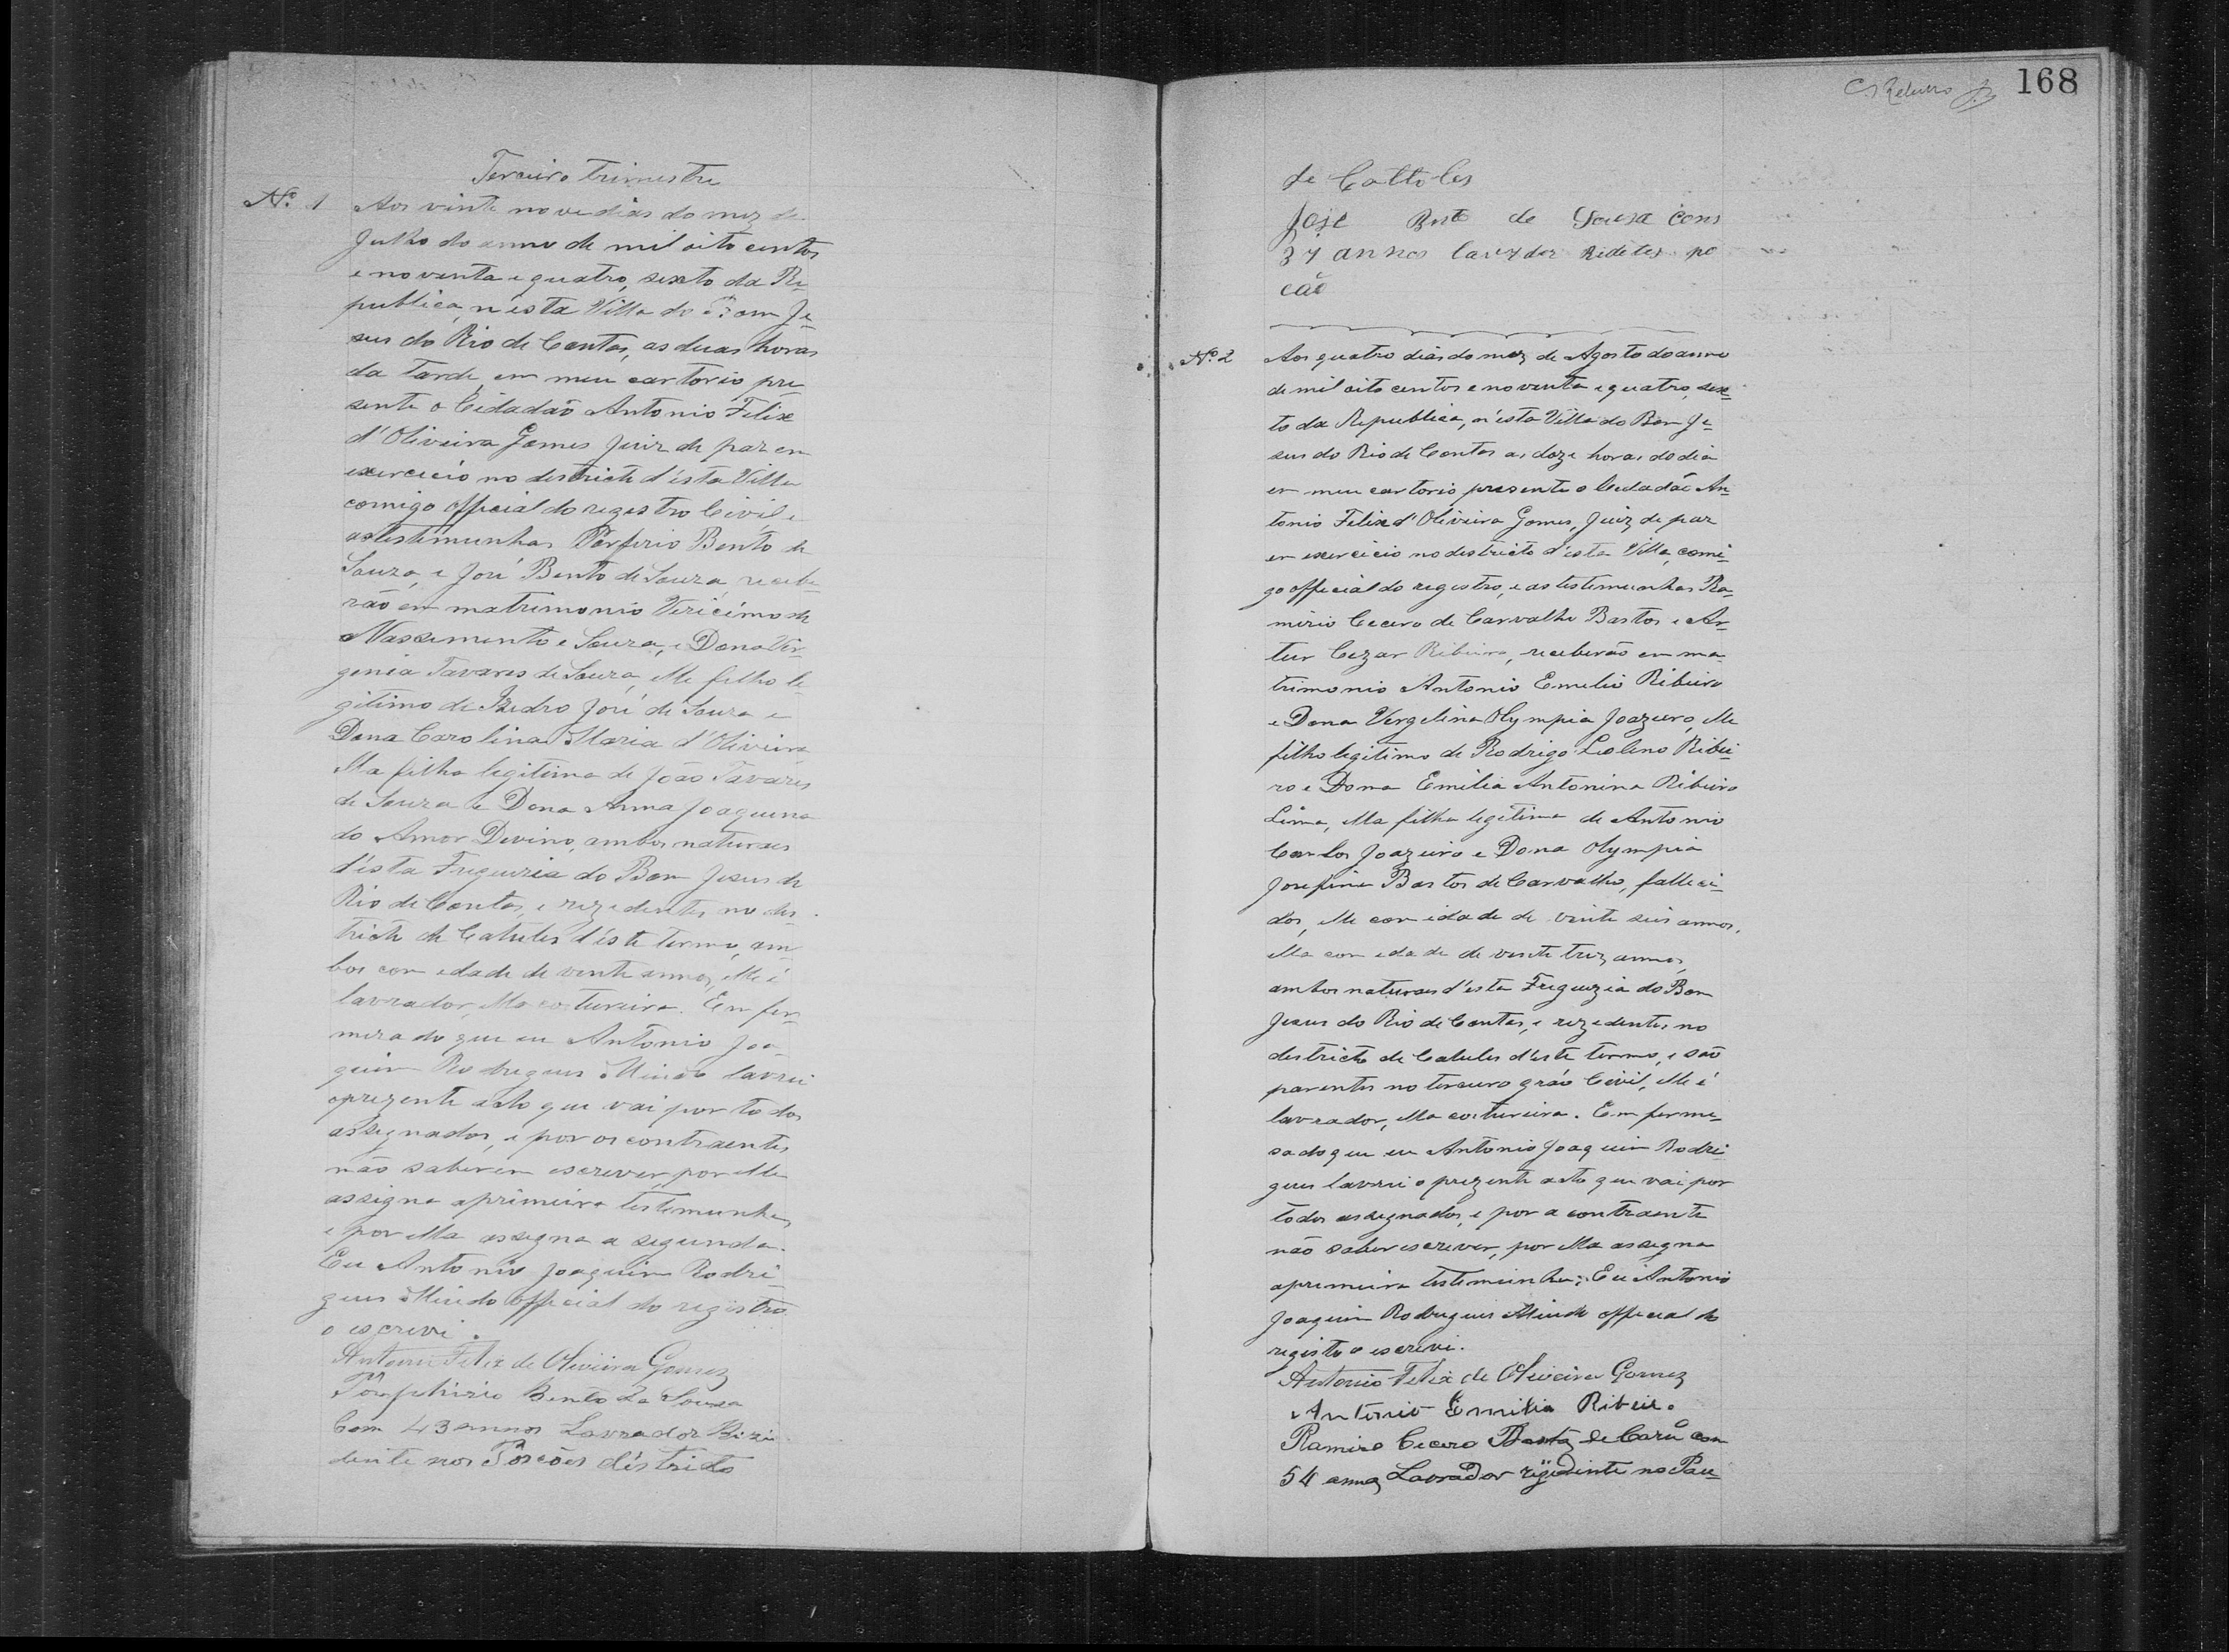 Terceiro trimestre
Nº 1 Aos vinte nove dias do mez de
Julho do anno de mil oito centos
e noventa e quatro, sexto da Re-
publica, n'esta Villa do Bom Je-
sus do Rio de Contas, as duas horas
da tarde, em meu cartorio pre-
sente o Cidadão Antonio Felix
d'Oliveira Gomes Juiz de paz em
exercicio no destricto d'esta Villa
comigo official do registro Civil, e
as testimunhas Porfirio Bento de
Souza, e José Bento de Souza, recebe-
rão em matrimonio Vericimo do
Nascimento e Souza, e Dona Vir-
genia Tavares de Souza, elle filho le-
gitimo de Pedro José de Souza e
Dona Carolina Maria d'Oliveira
ella filha legitima de João Tavares
de Souza e Dona Anna Joaquina
do Amor Devino, ambos naturaes
d'esta Freguezia do Bom Jesus do
Rio de Contas, e rezedentes no des-
tricto de Catules d'este termo, am-
bos com edade de vente annos, elle é
lavrador, ella costureira. Em fir-
meza do que eu Antonio Joa-
quim Rodrigues Mindo lavrei
o prezente acto que vai por todos
assegnados, e por os contraentes
não saberem escrever, por elle
assigna a primeira testemunha,
e por ella assegna a segunda.
Eu Antonio Joaquim Rodri-
gues Mindo official do registro
o escrevi.
Antonio Felix de Oliveira Gomez
Porphirio Bento de Souza
Com 43 annos Lavrador Rizi
dente nos Poções déstricto
168
de Cattoles
José Bnto de Sousa com
37 annos lavrador Ridetes po
cão
Nº 2 Aos quatro dias do mez de Agosto do anno
de mil oito centos e noventa e quatro, sex-
to da Republica, n'esta Villa do Bom Je-
sus do Rio de Contas as doze horas do dia
em meu cartorio presente o Cidadão An-
tonio Felix d'Oliveira Gomes, Juiz de paz
em exercicio no destricto d'esta Villa, comi-
go official do registro, e as testemunhas Ra-
miro Cecero de Carvalho Bastos e Ar-
tur Cezar Ribeiro, receberão em ma-
trimonio Antonio Emelio Ribeiro
e Dona Vergelina Olympia Joazeiro, elle
filho legitimo de Rodrigo Leolino Ribei-
ro e Dona Emilia Antonina Ribeiro
Lima, ella filha legitima de Antonio
Carlos Joazeiro e Dona Olympia
Josefina Bastos de Carvalho, falleci-
dos, elle com idade de vinte seis annos,
ella com edade de vinte trez annos,
ambos naturaes d'esta Freguezia do Bom
Jesus do Rio de Contas, e rezedentes no
destricto de Catules d'este termo, e são
parentes no terceiro gráo Civil, elle é
lavrador, ella costureira. Em ferme-
sa do que eu Antonio Joaquim Rodri-
gues lavrei o prezente acto que vai por
todos assegnados, e por a contraente
não saber escrever, por ella assegna
a premeira testemunha: Eu Antonio
Joaquim Rodrigues Mindo official do
registo o escrevi.
Antonio Felix de Oliveira Gomez
Antonio Emilio Ribeiro
Ramiro Cecero Bastos de Carº com
54 annos Lavrador rezedinte no Pau-